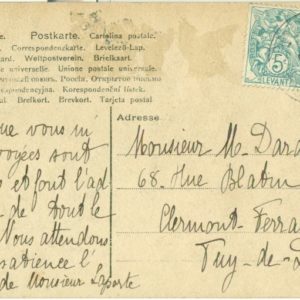 Postkarte. Cartolina postale.
Correspondenzkarte. Levelező-Lap.
Weltpostverein. Briefkaart.
universelle. Unione postale universale.
Россіи. Открытое письмо.
Korespondenční lístek.
Brefkort. Brevkort. Tarjeta postal
5
LEVANT
Adresse
que vous m'
voyés sont
et font l'ad
de tout le
Nous attendons
l'
de Monsieur Laporte
Monsieur M.
68. Rue Blatin
Clermont-Ferra
Puy-de-